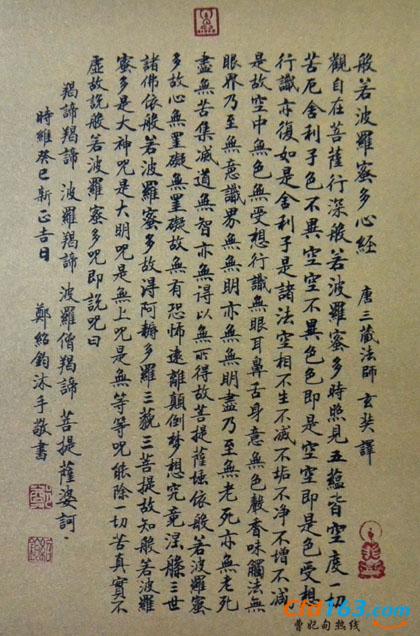 般若波羅蜜多心經　唐三藏法師玄奘譯
觀自在菩薩行深般若波羅蜜多時照見五蘊皆空度一切
苦厄舍利子色不異空空不異色色即是空空即是色受想
行識亦復如是舍利子是諸法空相不生不滅不垢不净不增不減
是故空中無色無受想行識無眼耳鼻舌身意無色聲香味觸法無
眼界乃至無意識界無無明亦無無明盡乃至無老死亦無老死
盡無苦集滅道無智亦無得以無所得故菩提薩埵依般若波羅蜜
多故心無罣礙無罣礙故無有恐怖遠離顛倒梦想究竟涅槃三世
諸佛依般若波羅蜜多故得阿耨多羅三藐三菩提故知般若波羅
蜜多是大神咒是大明咒是無上咒是無等等咒能除一切苦真實不
虛故說般若波羅蜜多咒即說咒曰
羯諦羯諦 波羅羯諦 波羅僧羯諦 菩提薩婆訶
時維癸巳新正吉日 鄭紹鈞沐手敬書
cfd163.com
曹妃甸热线